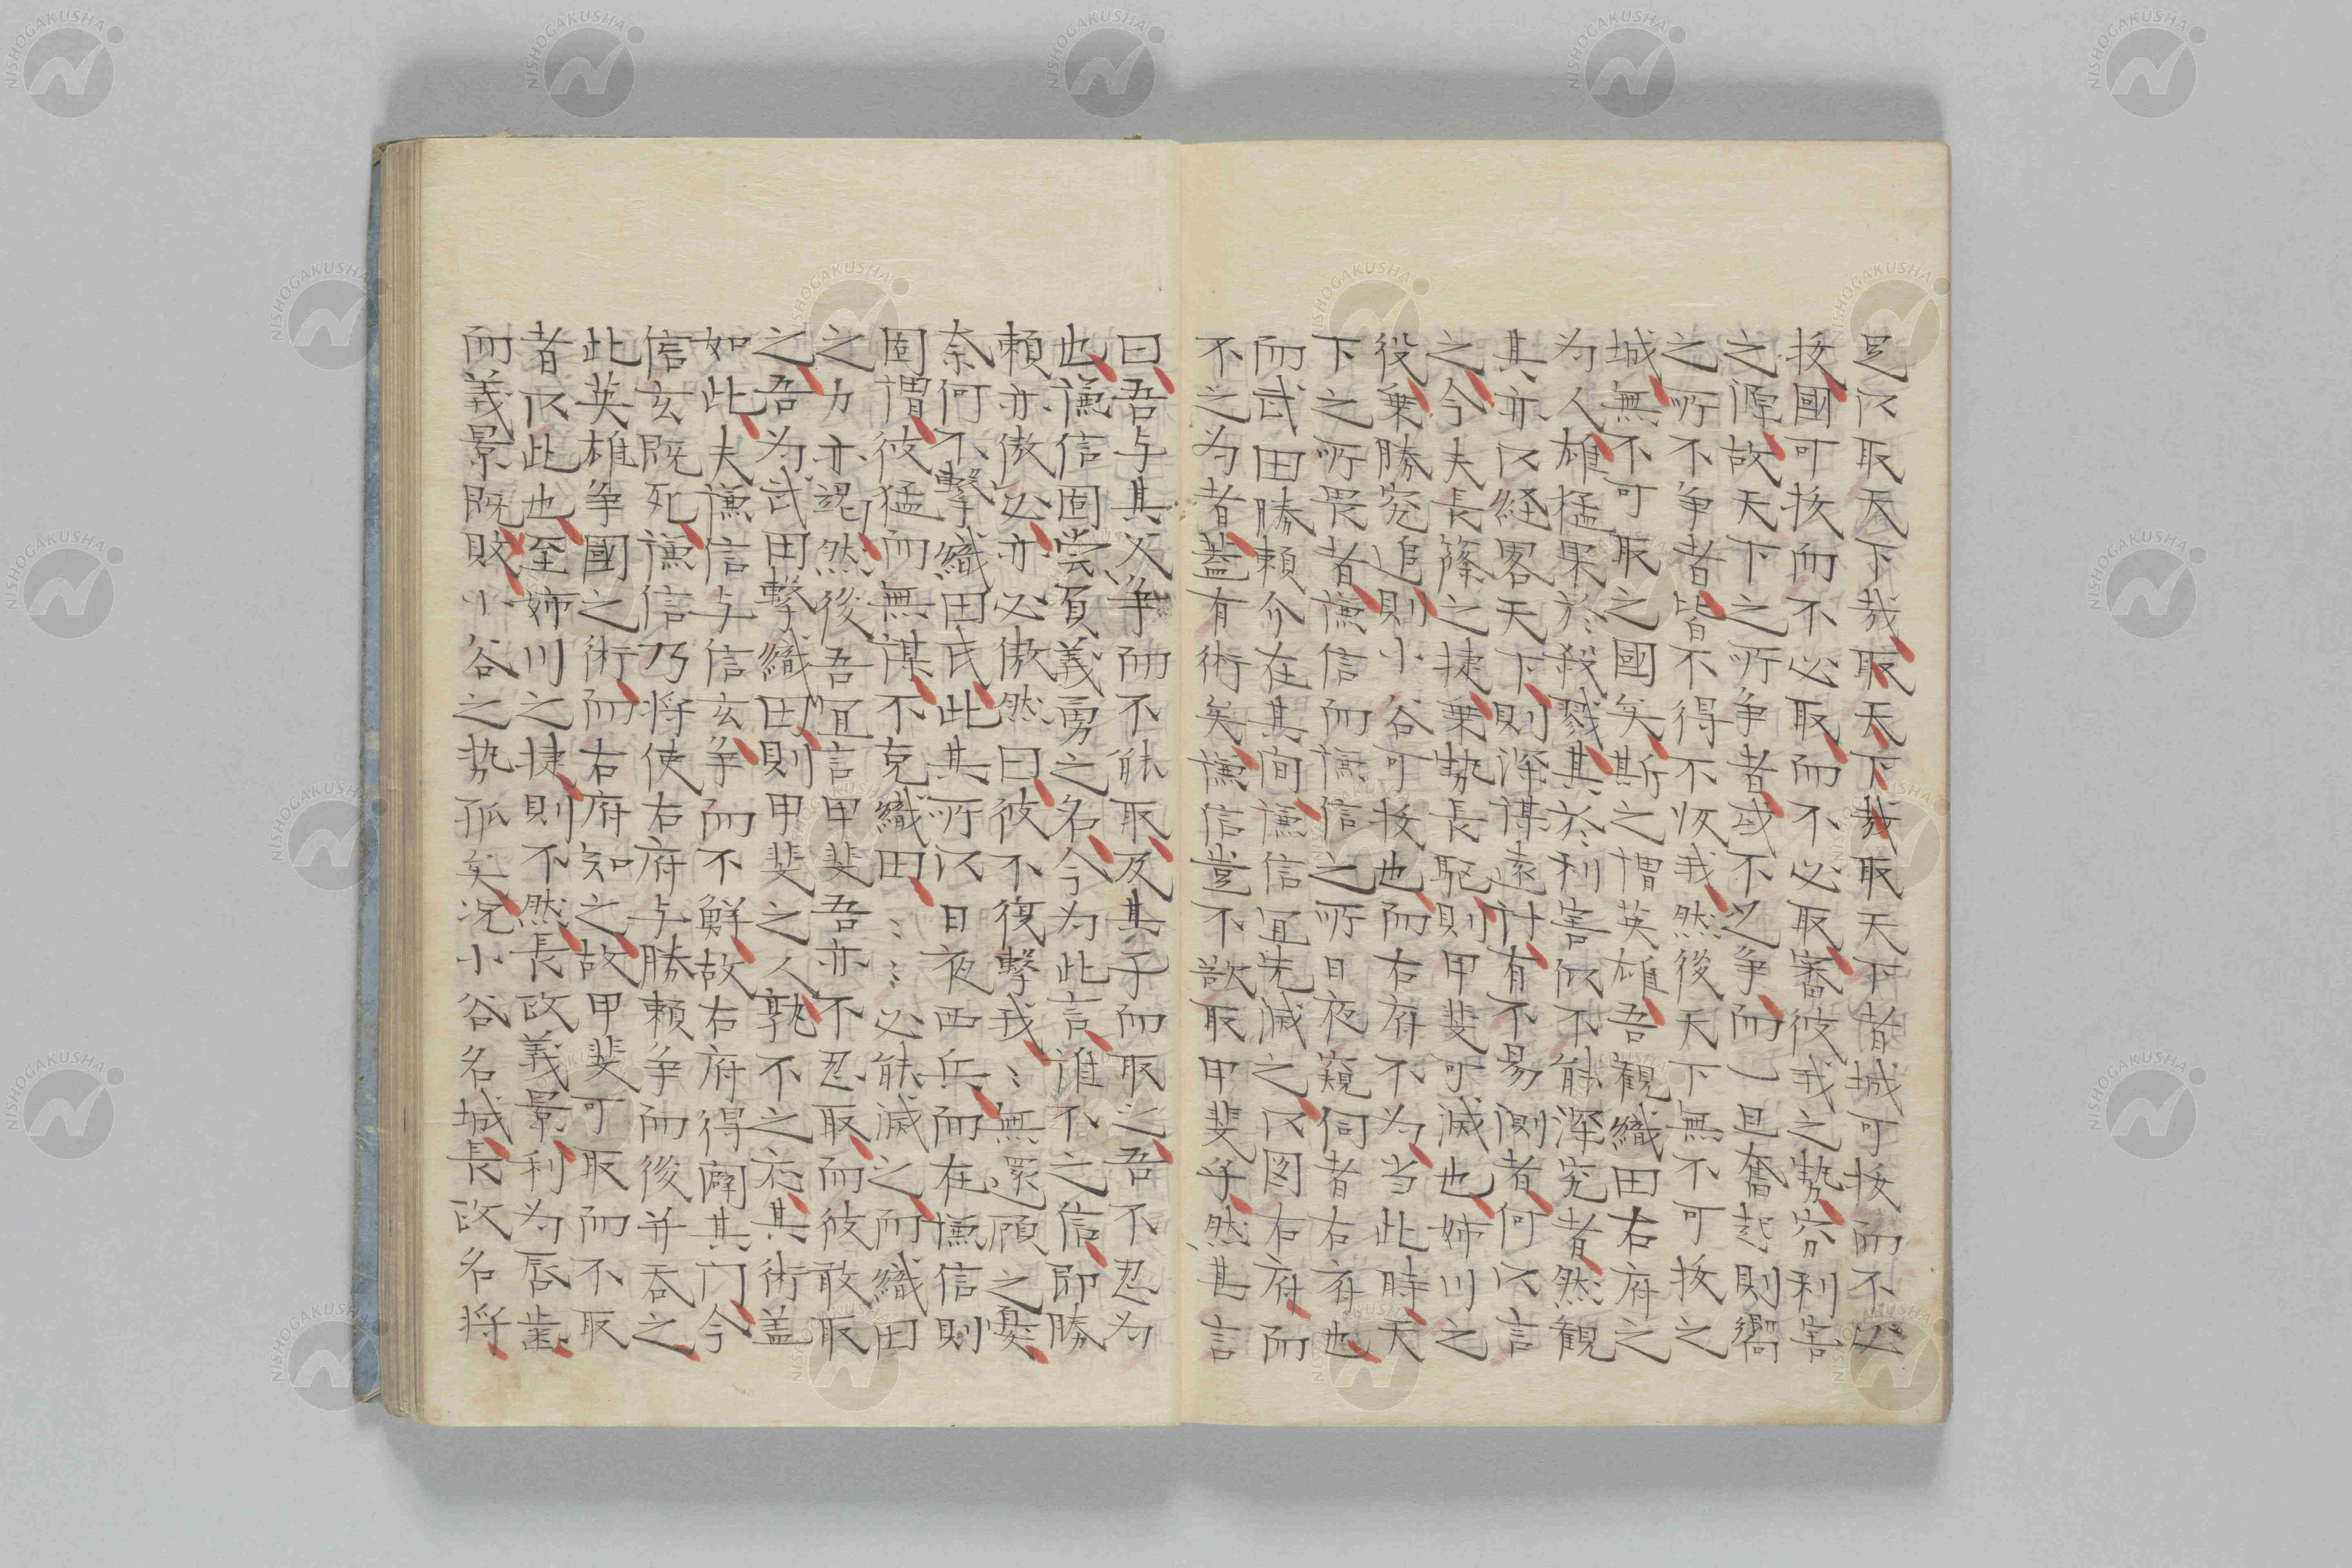 足以取天下哉取天下哉取天下者城可抜而不必
抜國可抜而不必取而不必取審彼我之勢容利害
之源故天下之所争者或不之争而一旦奮起則嚮
之所不争者皆不得不收我然後天下無不可抜之
城無不可取之國矣斯之謂英雄吾観織田右府之
為人雄猛果於殺戮其於利害似不能深究者然観
其亦以経畧天下則深謀遠計有不易測者何以言
之今夫長篠之捷乗勢長駆則甲斐可滅也姉川之
役乗勝窮追則小谷可抜也而右府不為当此時天
下之所畏者謙信而謙信之所日夜窺伺者右府也
而武田勝頼介在其間謙信宜先滅之以図右府而
不之為者蓋有術矣謙信豈不欲取甲斐乎然其言
曰吾与其父争而不能取及其子而取之吾不忍為
也謙信固嘗負義勇之名今為此言誰不之信即勝
頼亦傲必亦必傲然曰彼不復撃我〻無還顧之憂
奈何不撃織田氏此其所以日夜西兵而在謙信則
固謂彼猛而無謀不克織田〻〻必能滅之而織田
之力亦竭然後吾宜言甲斐吾亦不忍取而彼敢取
之吾為武田撃織田則甲斐之人孰不之応其術盖
如此夫謙信与信玄争而不鮮故右府得闢其门今
信玄既死謙信乃将使右府与勝頼争而後并吞之
此英雄争國之術而右府知之故甲斐可取而不取
者以此也至姉川之捷則不然長政義景利為唇歯
而義景既敗小谷之勢孤矣况小谷名城長政名将